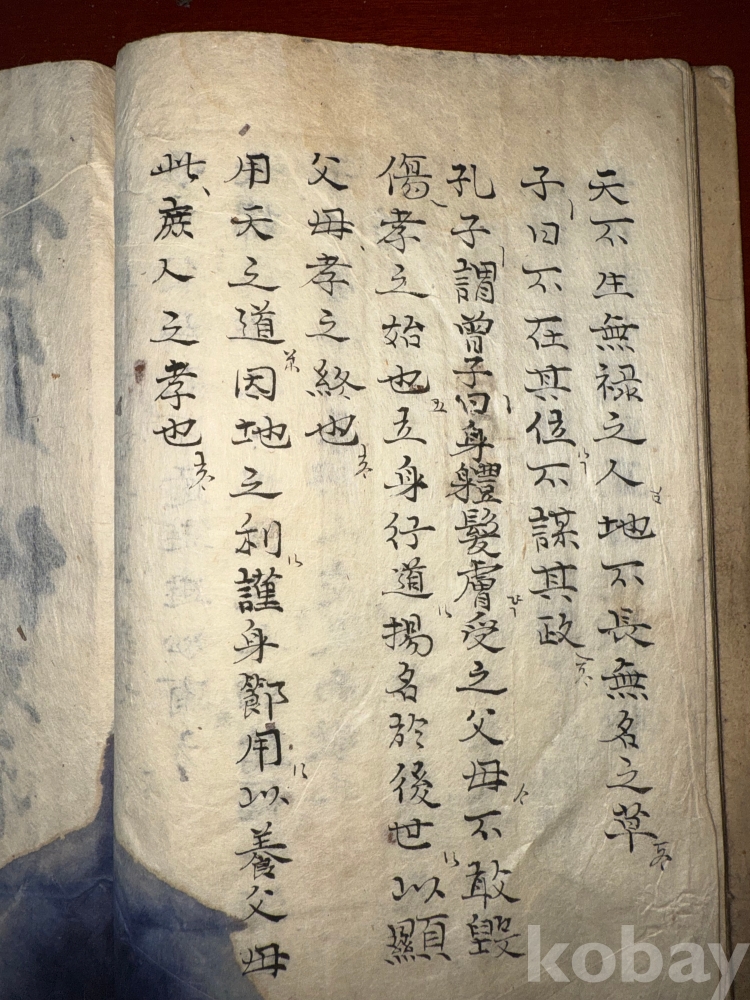 天不生無禄之人地不長無名之草
子曰不在其位不謀其政
孔子謂曾子曰身體髮膚受之父母不敢毀
傷孝之始也立身行道揚名於後世以顯
父母孝之終也
用天之道因地之利謹身節用以養父母
此庶人之孝也
kobay